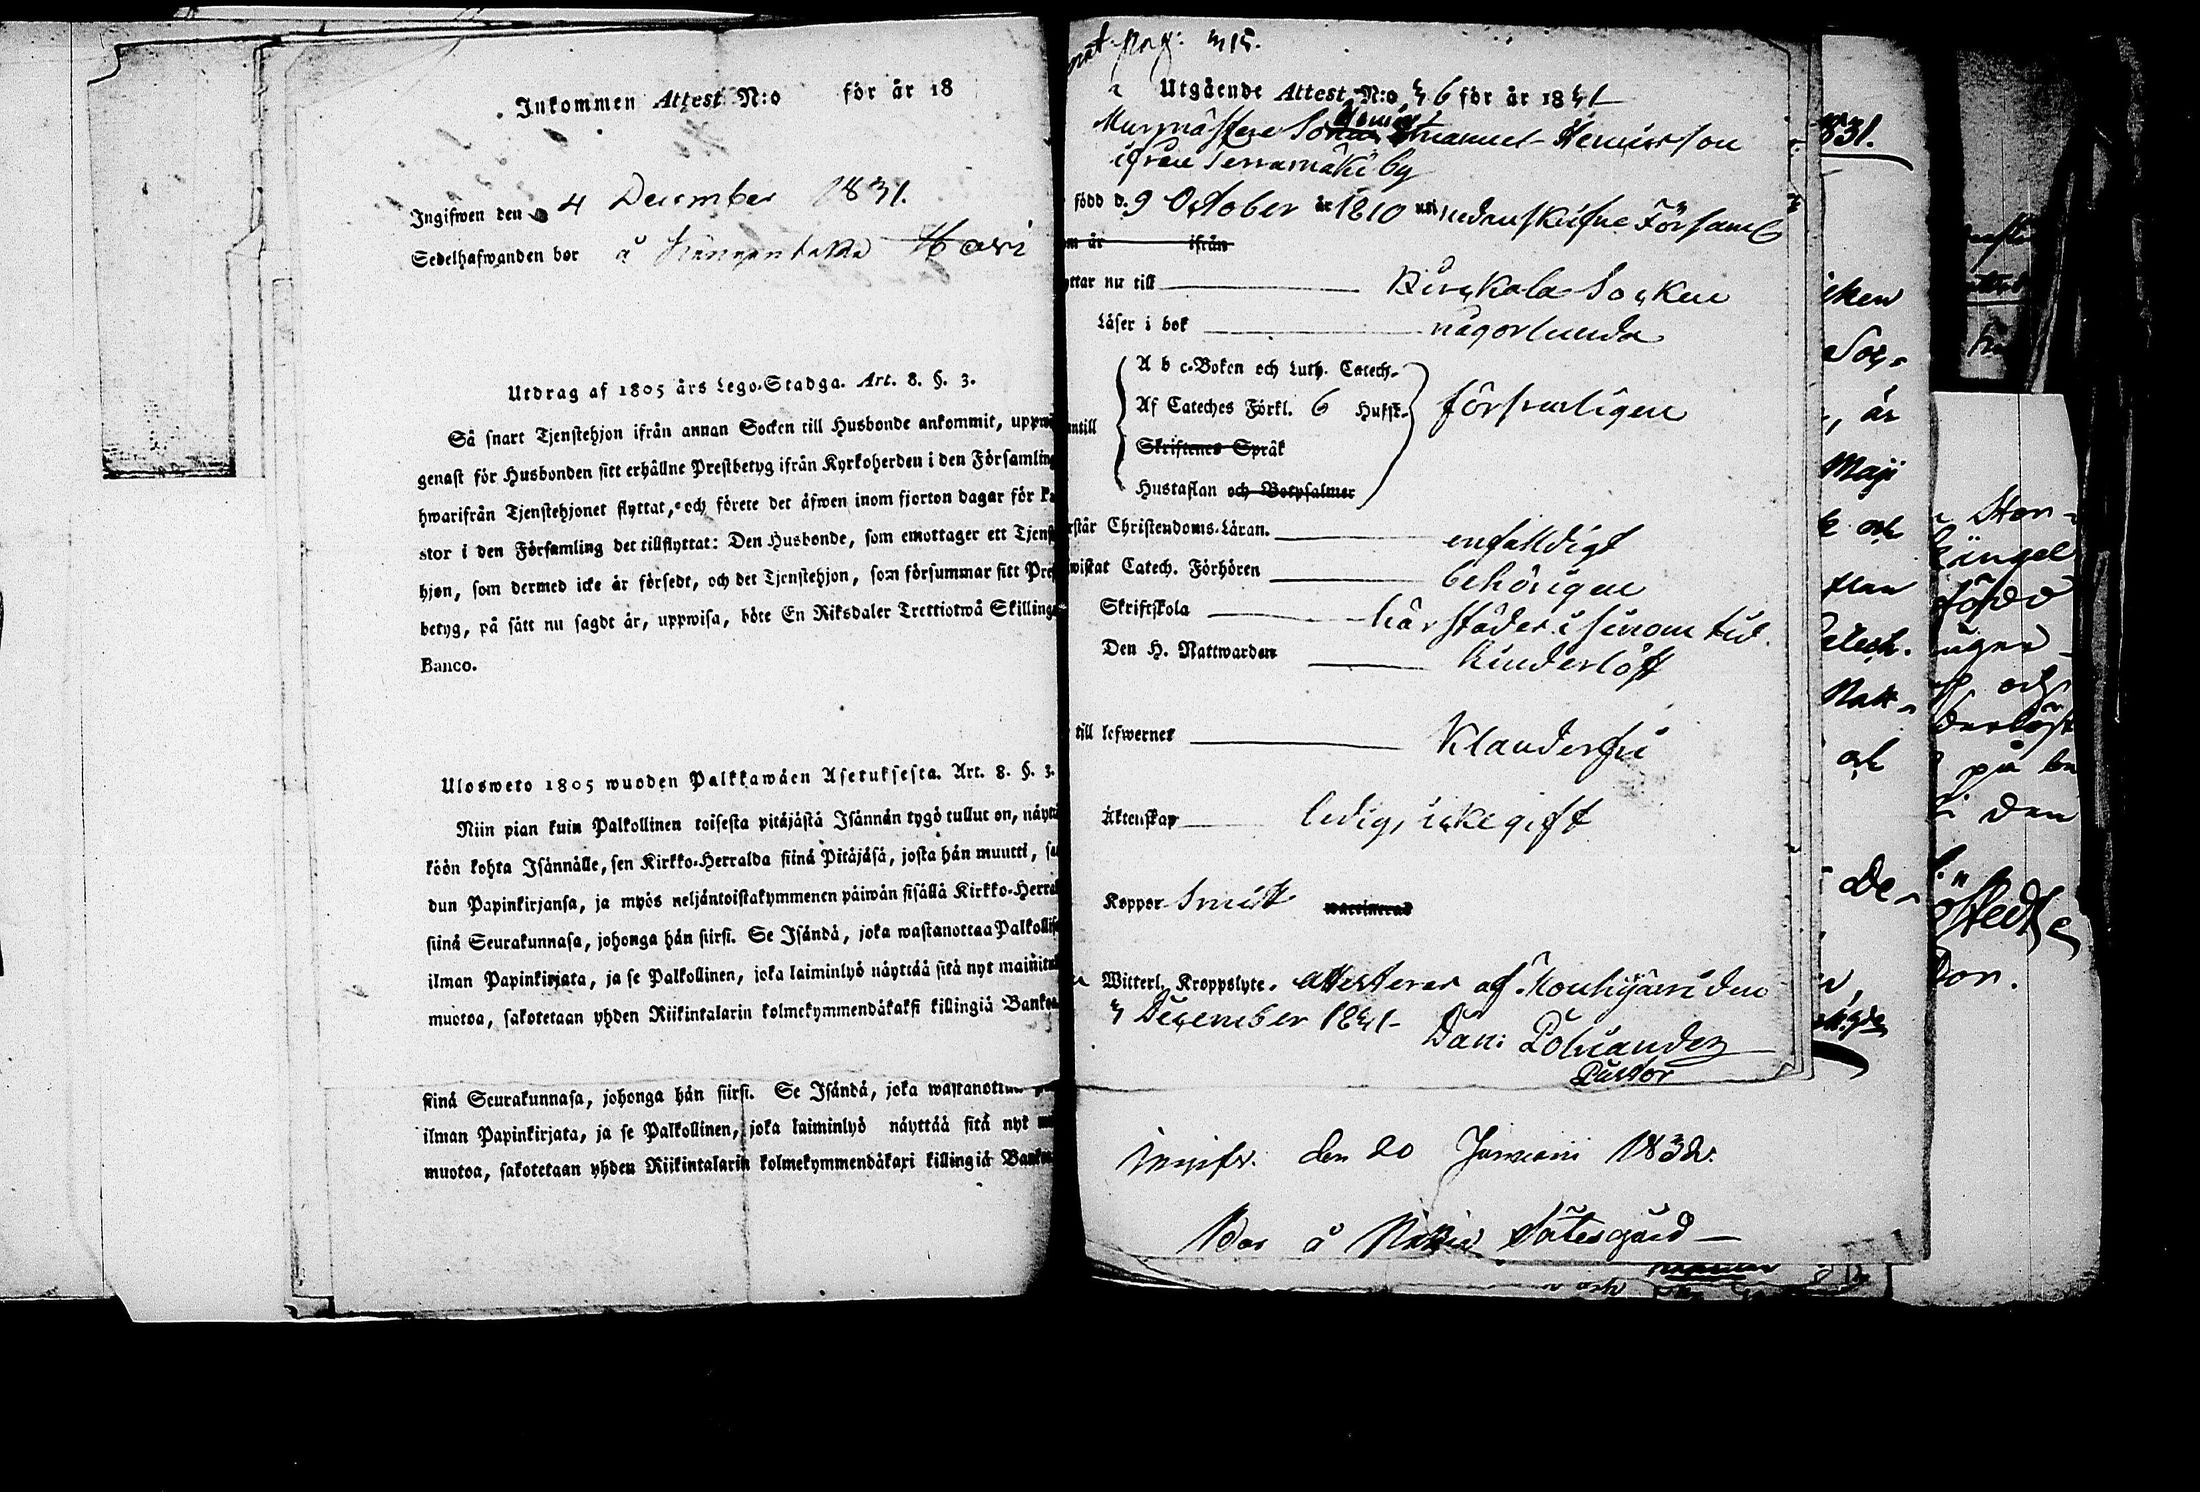 Inkommen Attest N:o för år 18
Ingifwen den 4 December 1831.
Sedelhafwanden bor å Hari
Utdrag af 1805 års Lego-Stadga. Art. 8. §. 3.
Så snart Tjenstehjon ifrån annan Socken till Husbonde ankommit, uppwi
genast för Husbonden sitt erhållne Prestbetyg ifrån Kyrkoherden i den Församling
hwarifrån Tjenstehjonet flyttat, och förete det äfwen inom fjorton dagar för Pa
stor i den Församling det tillflyttat: Den Husbonde, som emottager ett Tjenst
hjon, som dermed icke är försedt, och det Tjenstehjon, som försummar sitt Prest
betyg, på sätt nu sagdt är, uppwisa, böte En Riksdaler Trettiotwå Skillinga
Banco.
Ulosweto 1805 wuoden Palkkawäen Asetuksesta. Art. 8. §. 3.
Niin pian kuin Palkollinen toisesta pitäjästä Isännän tygö tullut on, näyttä
köön kohta Isännälle, sen Kirkko-Herralda siinä Pitäjäsä, josta hän muutti, sa
dun Papinkirjansa, ja myös neljäntoistakymmenen päiwän sisällä Kirkko-Herral
siinä Seurakunnasa, johonga hän siirsi. Se Isändä, joka wastanottaa Palkollise
ilman Papinkirjata, ja se Palkollinen, joka laiminlyö näyttää sitä nyt mainitul
muotoa, sakotetaan yhden Riikintalarin kolmekymmendäkaksi killingiä Bankos
siinä Seurakunnasa, johonga hän siirsi. Se Isändä, joka wastanottaa
ilman Papinkirjata, ja se Palkollinen, joka laiminlyö näyttää sitä nyt
muotoa, sakotetaan yhden Riikintalarin kolmekymmendäkaxi killingiä Banko
pag: 315.
Utgående Attest N:o 36 för år 1831
Murmästare Sonen Emanuel Henricsson
ifrån by
född d. 9 October år 1810 uti nedanskrifne Församl
om år ifrån
yttar nu till Birckala Socken
Läser i bok någorlunda
A b c-Boken och Luth. Catech.
Af Cateches Förkl. 6 Hufst.
antill försvarligen
Skriftenes Språk
Hustaflan och Botpsalmer
rstår Christendoms-Läran. enfaldigt
wistat Catech. Förhören behörigen
Skriftskola härstädes i sinom tid.
Den H. Nattwarden hinderlöst
till lefwernet Klanderfri
Äktenskap ledig, icke gift
Koppor Smitt waccinerad
Witterl. Kroppslyte. Attesterar af Mouhijärvi den
3 December 1831. Dan: Polviander
Pastor
Ingifv. den 20 Januarii 1832.
Bor å Säteigård
831.
cken
Soc.
, är
Maji
och
Catech.
Natt-
och
De-
Hen-
Längel-
född
och
derlöst
på
i den